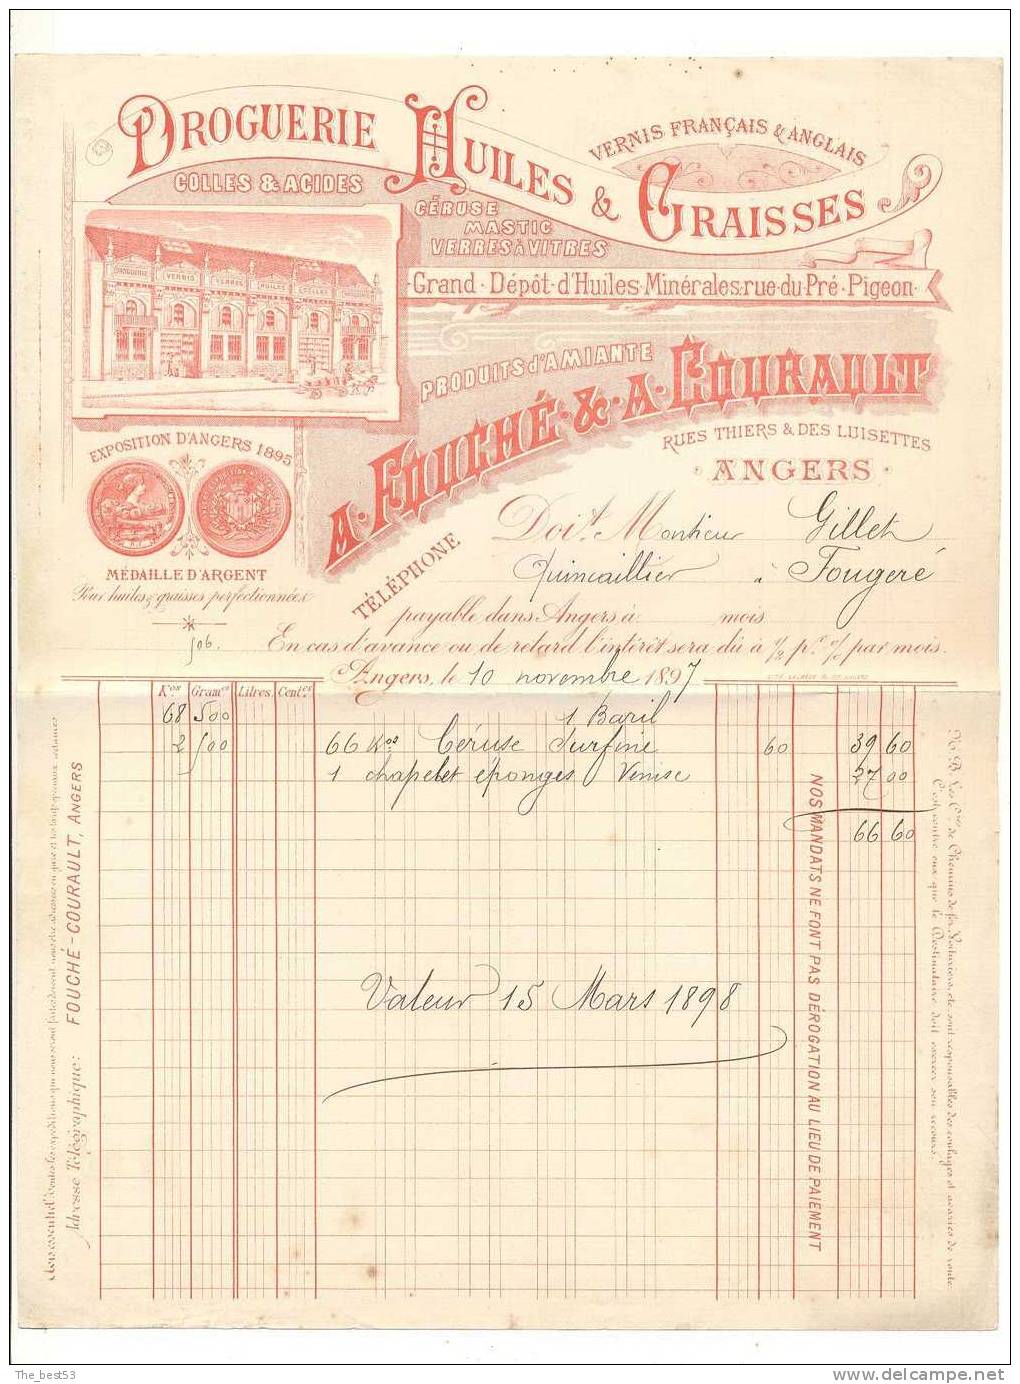 DROGUERIE HUILES & GRAISSES
VERNIS FRANÇAIS & ANGLAIS
COLLES & ACIDES
CÉRUSE
MASTIC
VERRES À VITRES
DROGUERIE VERNIS VERRES HUILES COLLES
Grand Dépôt d'Huiles Minérales rue du Pré Pigeon
PRODUITS d'AMIANTE
A. FOUCHÉ & A. COURAULT
RUES THIERS & DES LUISETTES
ANGERS
EXPOSITION D'ANGERS 1895
MÉDAILLE D'ARGENT
Pour huiles & graisses perfectionnées
TÉLÉPHONE
Doit Monsieur Gillet
Quincaillier à Fougeré
payable dans Angers à mois
506.
En cas d'avance ou de retard l'intérêt sera dû à ½ p.r % par mois.
Angers, le 10 novembre 1897
Kos Grames Litres. Centes
68 500 1 Baril
2 500 66 Kos Céruse Surfine 60 39 60
1 chapelet éponges Venise 27 00
66 60
Valeur 15 Mars 1898
NOS MANDATS NE FONT PAS DÉROGATION AU LIEU DE PAIEMENT
N.B. Les Cies de Chemins de fer, Voituriers, etc. sont responsables des coulages et avaries de route.
C'est contre eux que le Destinataire doit exercer son recours.
Adresse Télégraphique: FOUCHÉ-COURAULT, ANGERS
Avis essentiel.
The_best53
www.delcampe.net